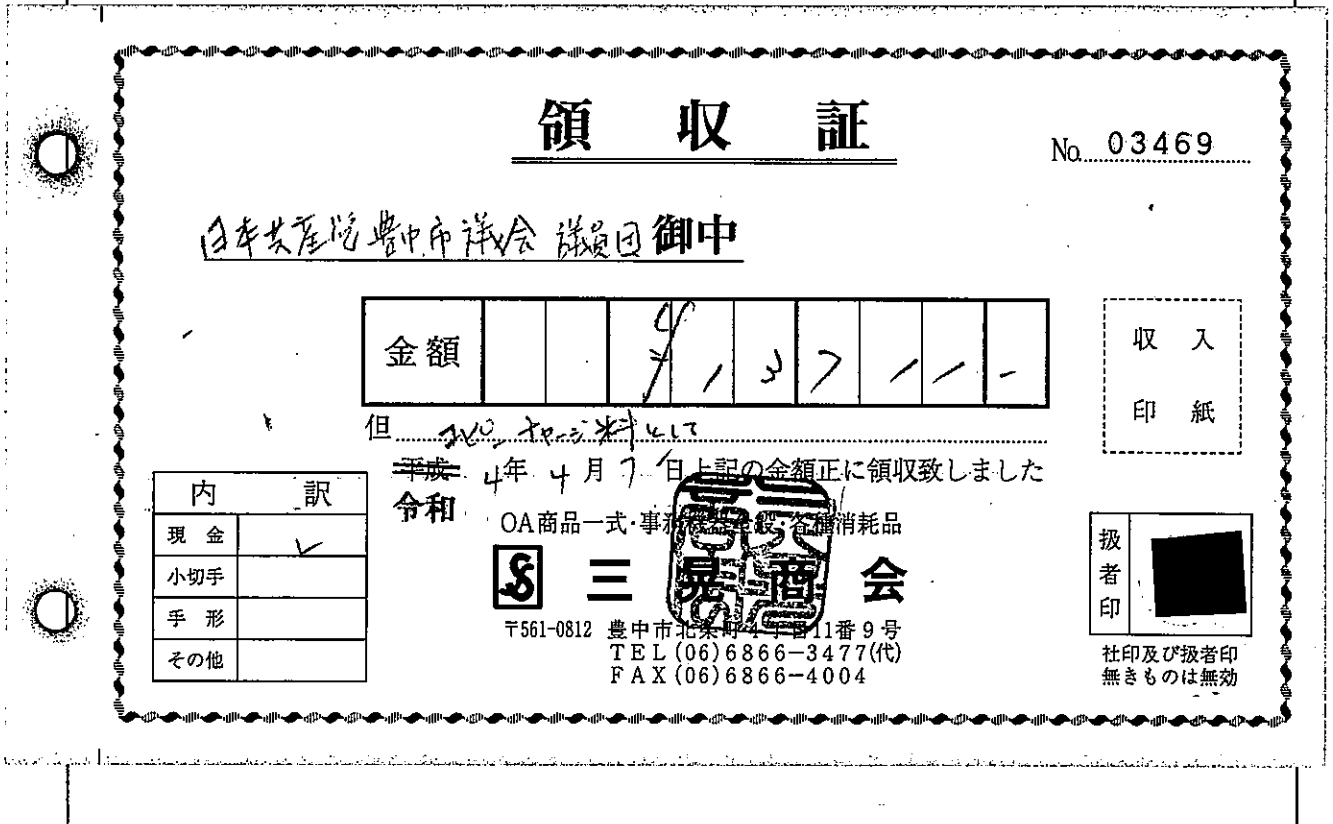 領収証
No. 03469
日本共産党豊中市議会 議員団 御中
金額 ¥13711-
但 コピーチャージ料として
平成 4年 4月 7日上記の金額正に領収致しました
令和
OA商品一式・事務機器全般・各種消耗品
三晃商会
〒561-0812 豊中市北条町4丁目11番9号
TEL(06)6866-3477(代)
FAX(06)6866-4004
内訳
現金 ✓
小切手
手形
その他
収入
印紙
扱者印
社印及び扱者印
無きものは無効